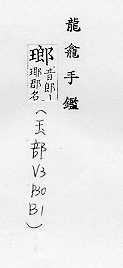 龍龕手鑑
瑯音郎丨
瑯郡名
(玉部
V3
P30
B1
)